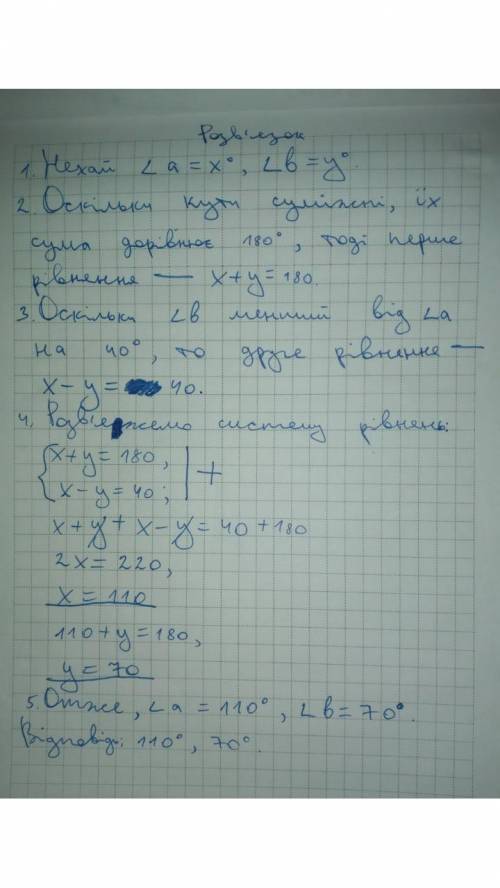 Розв'язок
1. Нехай ∠a = x°, ∠b = y°.
2. Оскільки кути суміжні, їх
сума дорівнює 180°, тоді перше
рівнення — x + y = 180.
3. Оскільки ∠b менший від ∠a
на 40°, то друге рівнення —
x - y = 40.
4. Розв'яжемо систему рівнень:
{x + y = 180, | +
x - y = 40; |
x + y + x - y = 40 + 180
2x = 220,
x = 110
110 + y = 180,
y = 70
5. Отже, ∠a = 110°, ∠b = 70°.
Відповідь: 110°, 70°.